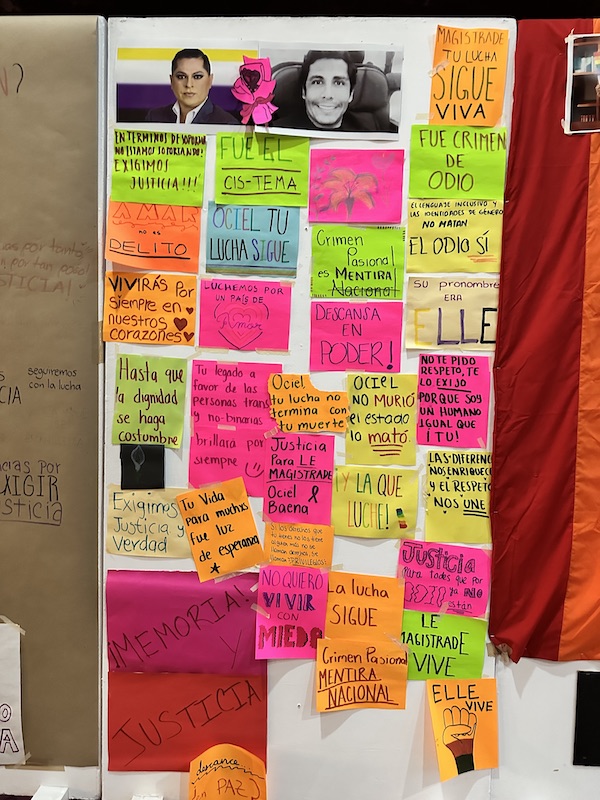 MAGISTRADE
TU LUCHA
SIGUE
VIVA
EN TERMINOS DE SOPORTAR
NO ESTAMOS SOPORTANDO!
EXIGIMOS
JUSTICIA!!!
FUE EL
CIS-TEMA
FUE CRIMEN
DE
ODIO
AMAR
no es
DELITO
OCIEL TU
LUCHA SIGUE
Crimen
Pasional
es MENTIRA
Nacional
EL LENGUAJE INCLUSIVO Y
LAS IDENTIDADES DE GÉNERO
NO MATAN
EL ODIO SÍ
VIVIRÁS Por
siempre en
nuestros
corazones
LUCHEMOS POR
UN PAÍS DE
Amor
DESCANSA
EN
PODER!
SU PRONOMBRE
ERA
ELLE
Hasta que
la dignidad
se haga
costumbre
Tu legado a
favor de las
personas trans
y no-binarias
brillará por
siempre
Ociel,
tu lucha no
termina con
tu muerte
OCIEL
NO MURIÓ
el estado
lo mató.
NO TE PIDO
RESPETO, TE
LO EXIJO
PORQUE SOY
UN HUMANO
IGUAL QUE
¡TU!
Justicia
Para LE
MAGISTRADE
Ociel
Baena
¡Y LA QUE
LUCHE!
LAS DIFERENC
NOS ENRIQUECE
y EL RESPETO
NOS UNE
Exigimos
Justicia y
Verdad
Tu Vida
Para muchxs
fue luz
de esperanza
Si los derechos que
tu tienes no los tiene
NO QUIERO
VIVIR
CON
MIEDO
La lucha
SIGUE
JUSTICIA
Para todes que por
ODIO ya no
están
LE
MAGISTRADE
VIVE
¡MEMORIA!
Y
JUSTICIA
Crimen Pasional
MENTIRA
NACIONAL
ELLE
VIVE
descance
en PAZ
seguiremos
con la lucha
EXIGIR
justicia